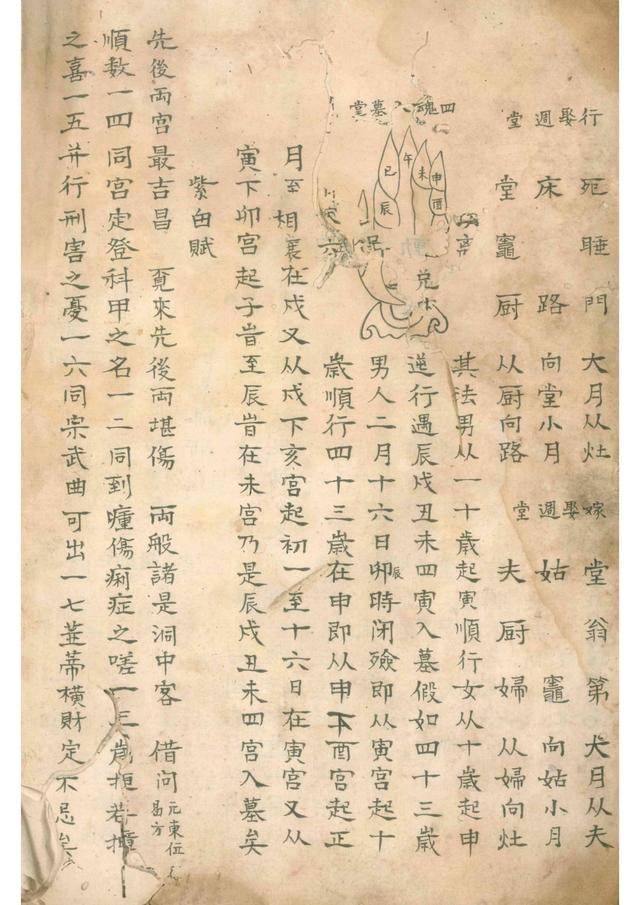 行娶週堂
死睡門
床路
堂竈厨
大月从灶
向堂小月
从厨向路
嫁娶週堂
堂翁第
姑竈
夫厨婦
大月从夫
向姑小月
从婦向灶
四魂入墓堂
申
酉
未
午
巳
辰
其法男从一十歳起寅順行女从十歳起申
逆行遇辰戌丑未四寅入墓假如四十三歳
男人二月十六日卯辰時闭殮即从寅宮起十
歳順行四十三歳在申即从申下酉宮起正
月至相襄在戍又从戍下亥宮起初一至十六日在寅宮又从
寅下卯宮起子旹至辰旹在未宮乃是辰戌丑未四宮入墓矣
紫白賦
先後両宮最吉昌 覔來先後両堪傷 両般諸是洞中客 借問元東伍易方
順数一四同宮定登科甲之名一二同到瘇傷痢症之嗟一三歳拒若撞
之喜一五并行刑害之憂一六同宗武曲可出一七並蒂橫財定不忌矣